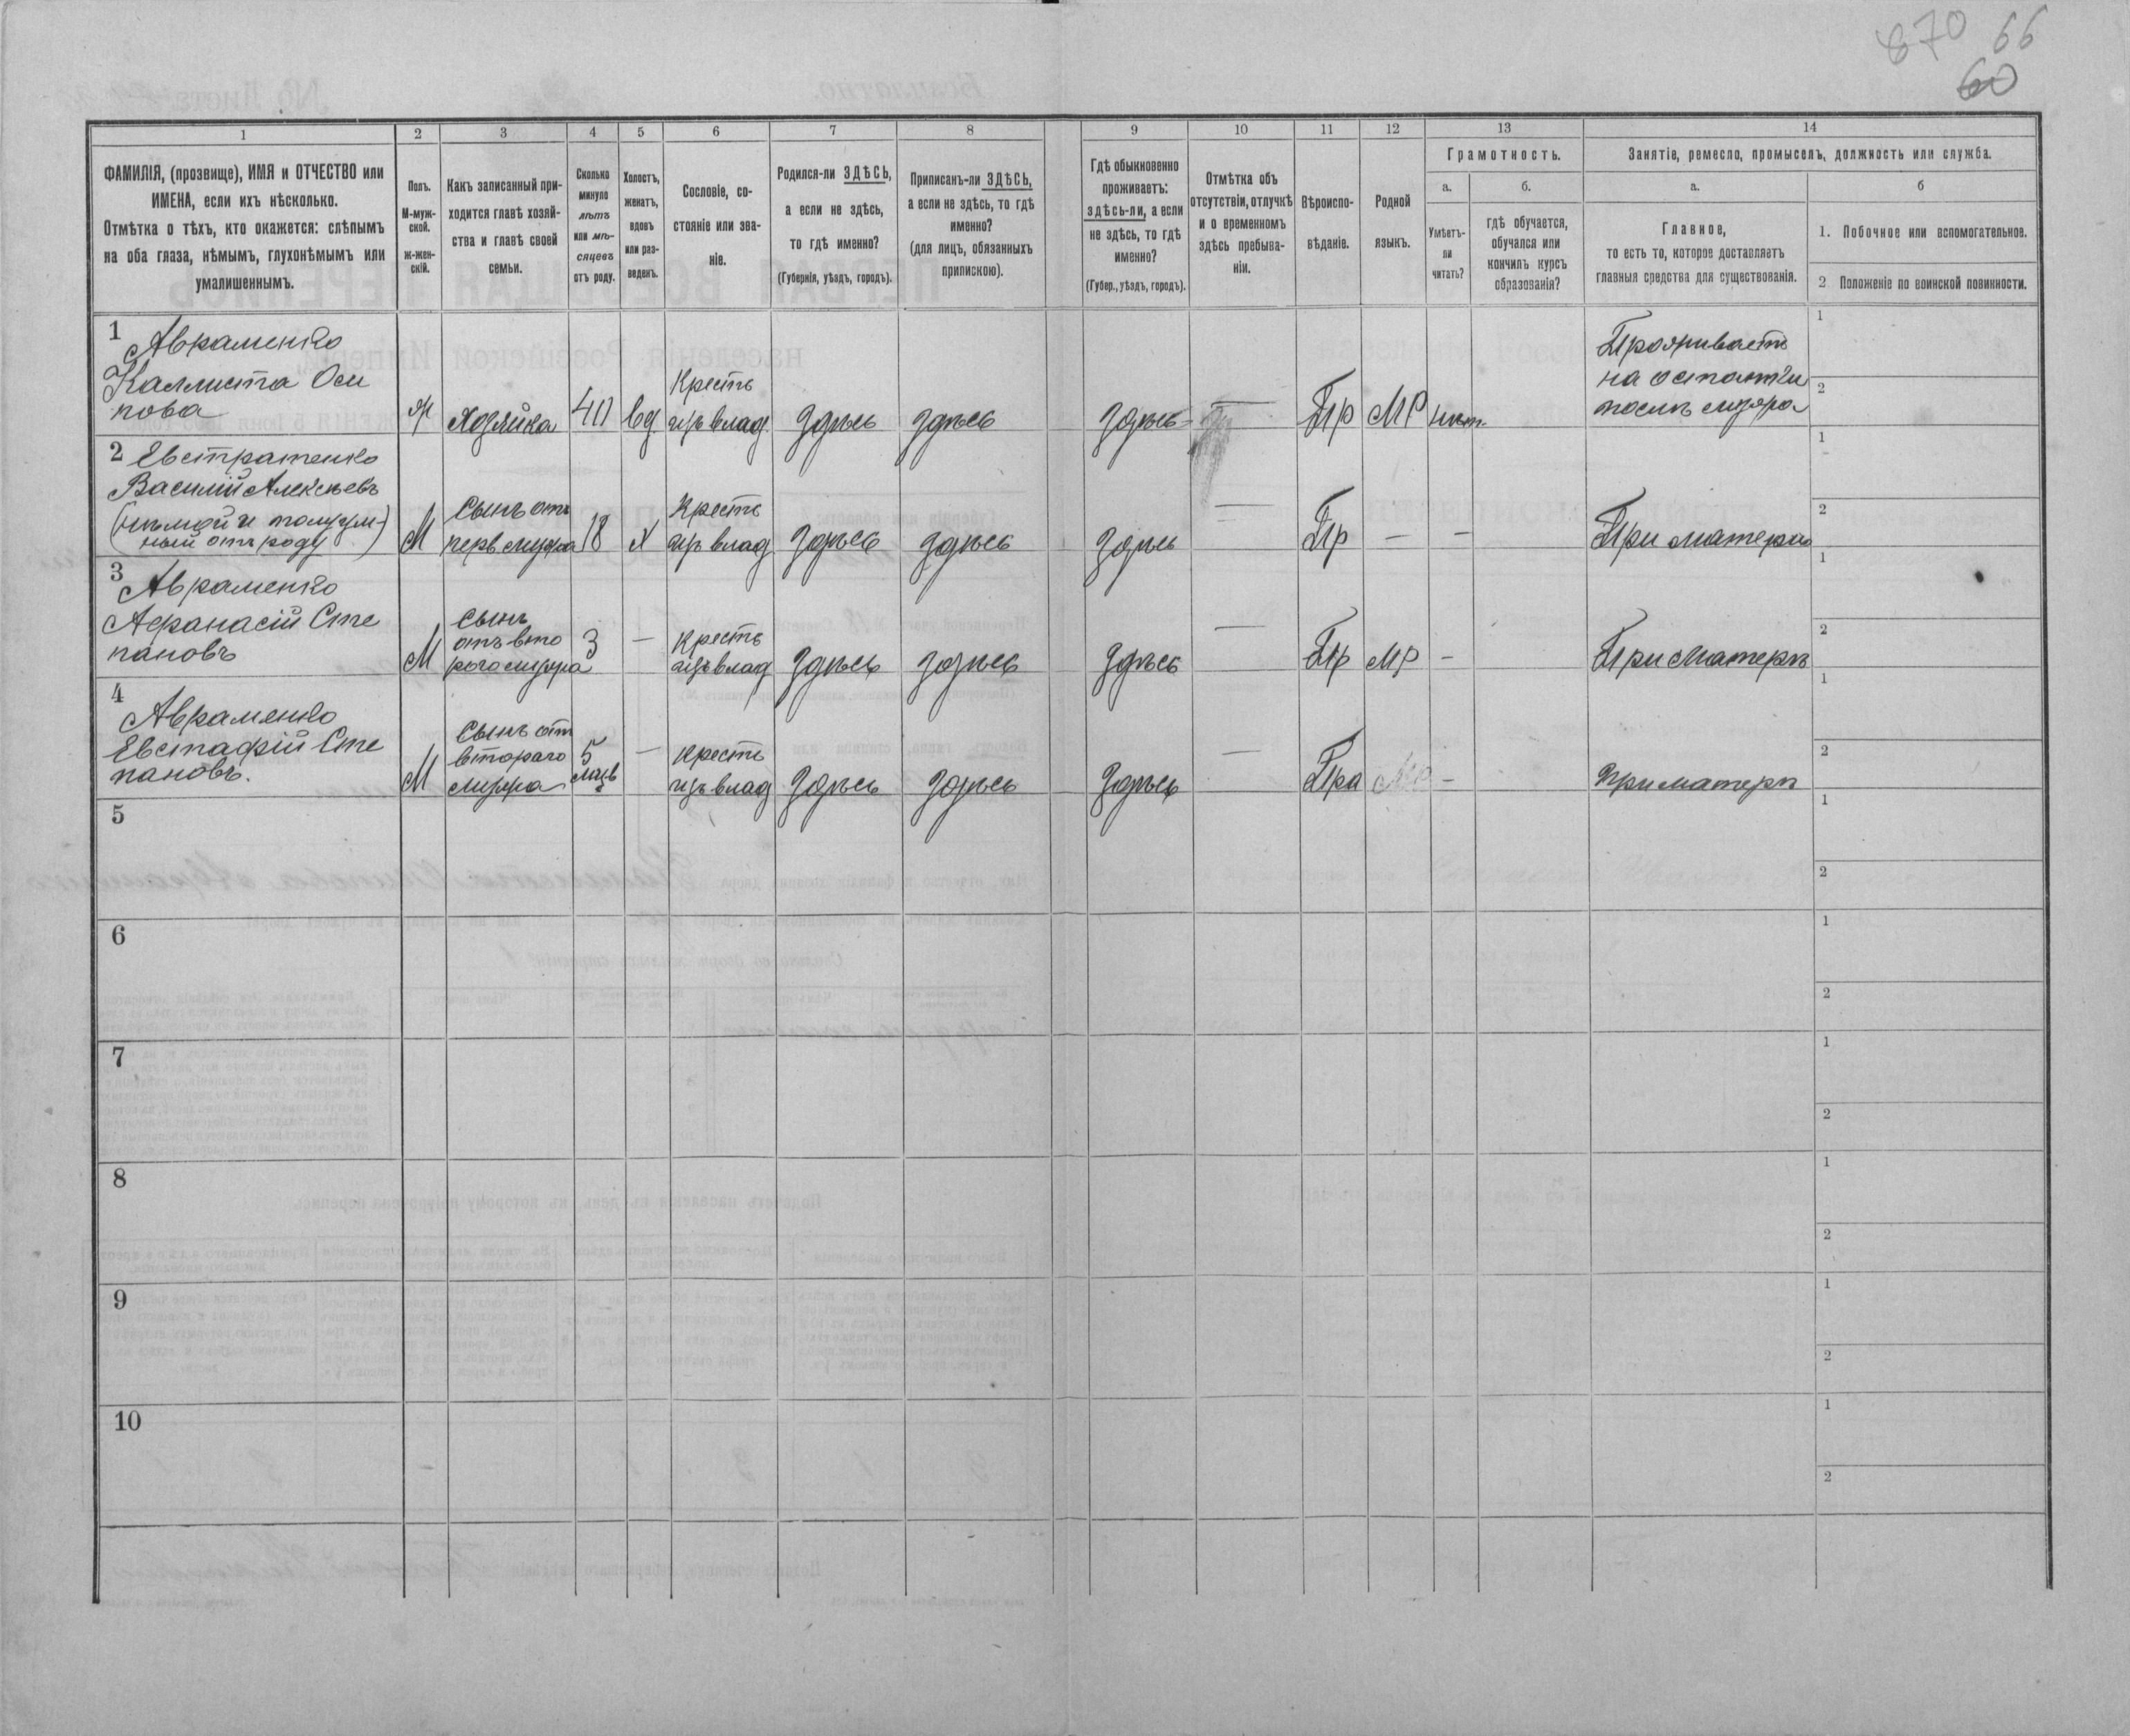 870 66
60
1 2 3 4 5 6 7 8 9 10 11 12 13 14
ФАМИЛІЯ, (прозвище), ИМЯ и ОТЧЕСТВО или
ИМЕНА, если ихъ нѣсколько.
Отмѣтка о тѣхъ, кто окажется: слѣпымъ
на оба глаза, нѣмымъ, глухонѣмымъ или
умалишеннымъ.
Полъ.
М-муж-
ской.
ж-жен-
скій.
Какъ записанный при-
ходится главѣ хозяй-
ства и главѣ своей
семьи.
Сколько
минуло
лѣтъ
или мѣ-
сяцевъ
отъ роду.
Холостъ,
женатъ,
вдовъ
или раз-
веденъ.
Сословіе, со-
стояніе или зва-
ніе.
Родился-ли ЗДѢСЬ,
а если не здѣсь,
то гдѣ именно?
(Губернія, уѣздъ, городъ).
Приписанъ-ли ЗДѢСЬ,
а если не здѣсь, то гдѣ
именно?
(для лицъ, обязанныхъ
припискою).
Гдѣ обыкновенно
проживаетъ:
здѣсь-ли, а если
не здѣсь, то гдѣ
именно?
(Губер., уѣздъ, городъ).
Отмѣтка объ
отсутствіи, отлучкѣ
и о временномъ
здѣсь пребыва-
ніи.
Вѣроиспо-
вѣданіе.
Родной
языкъ.
Грамотность.
а.
Умѣетъ-
ли
читать?
б.
гдѣ обучается,
обучался или
кончилъ курсъ
образованія?
Занятіе, ремесло, промыселъ, должность или служба.
а.
Главное,
то есть то, которое доставляетъ
главныя средства для существованія.
б
1. Побочное или вспомогательное.
2 Положеніе по воинской повинности.
1
Авраменко
Каллиста Оси
пова
ж
Хозяйка
40
вд
Кресть
изъ влад.
здѣсь
здѣсь
здѣсь
—
Пр
МР
нет.
Проживаетъ
на остатки
послѣ мужа
1
2
2 Евстратенко
Василій Алексѣевъ
(нѣмой и полуум-
ный отъ роду)
М
Сынъ отъ
перв мужа
18
х
Кресть
изъ влад
здѣсь
здѣсь
здѣсь
—
Пр
—
—
При матери
1
2
3
Авраменко
Афанасій Сте
пановъ
М
Сынъ
отъ вто
рого мужа
3
—
Кресть
изъ влад
здѣсь
здѣсь
здѣсь
—
Пр
МР
-
При матерѣ
1
2
4
Авраменко
Евстафій Сте
пановъ.
М
Сынъ от
второго
мужа
5
мцв
—
Кресть
изъ влад
здѣсь
здѣсь
здѣсь
—
Пра
МР
-
При матерѣ
1
2
5
1
2
6
1
2
7
1
2
8
1
2
9
1
2
10
1
2